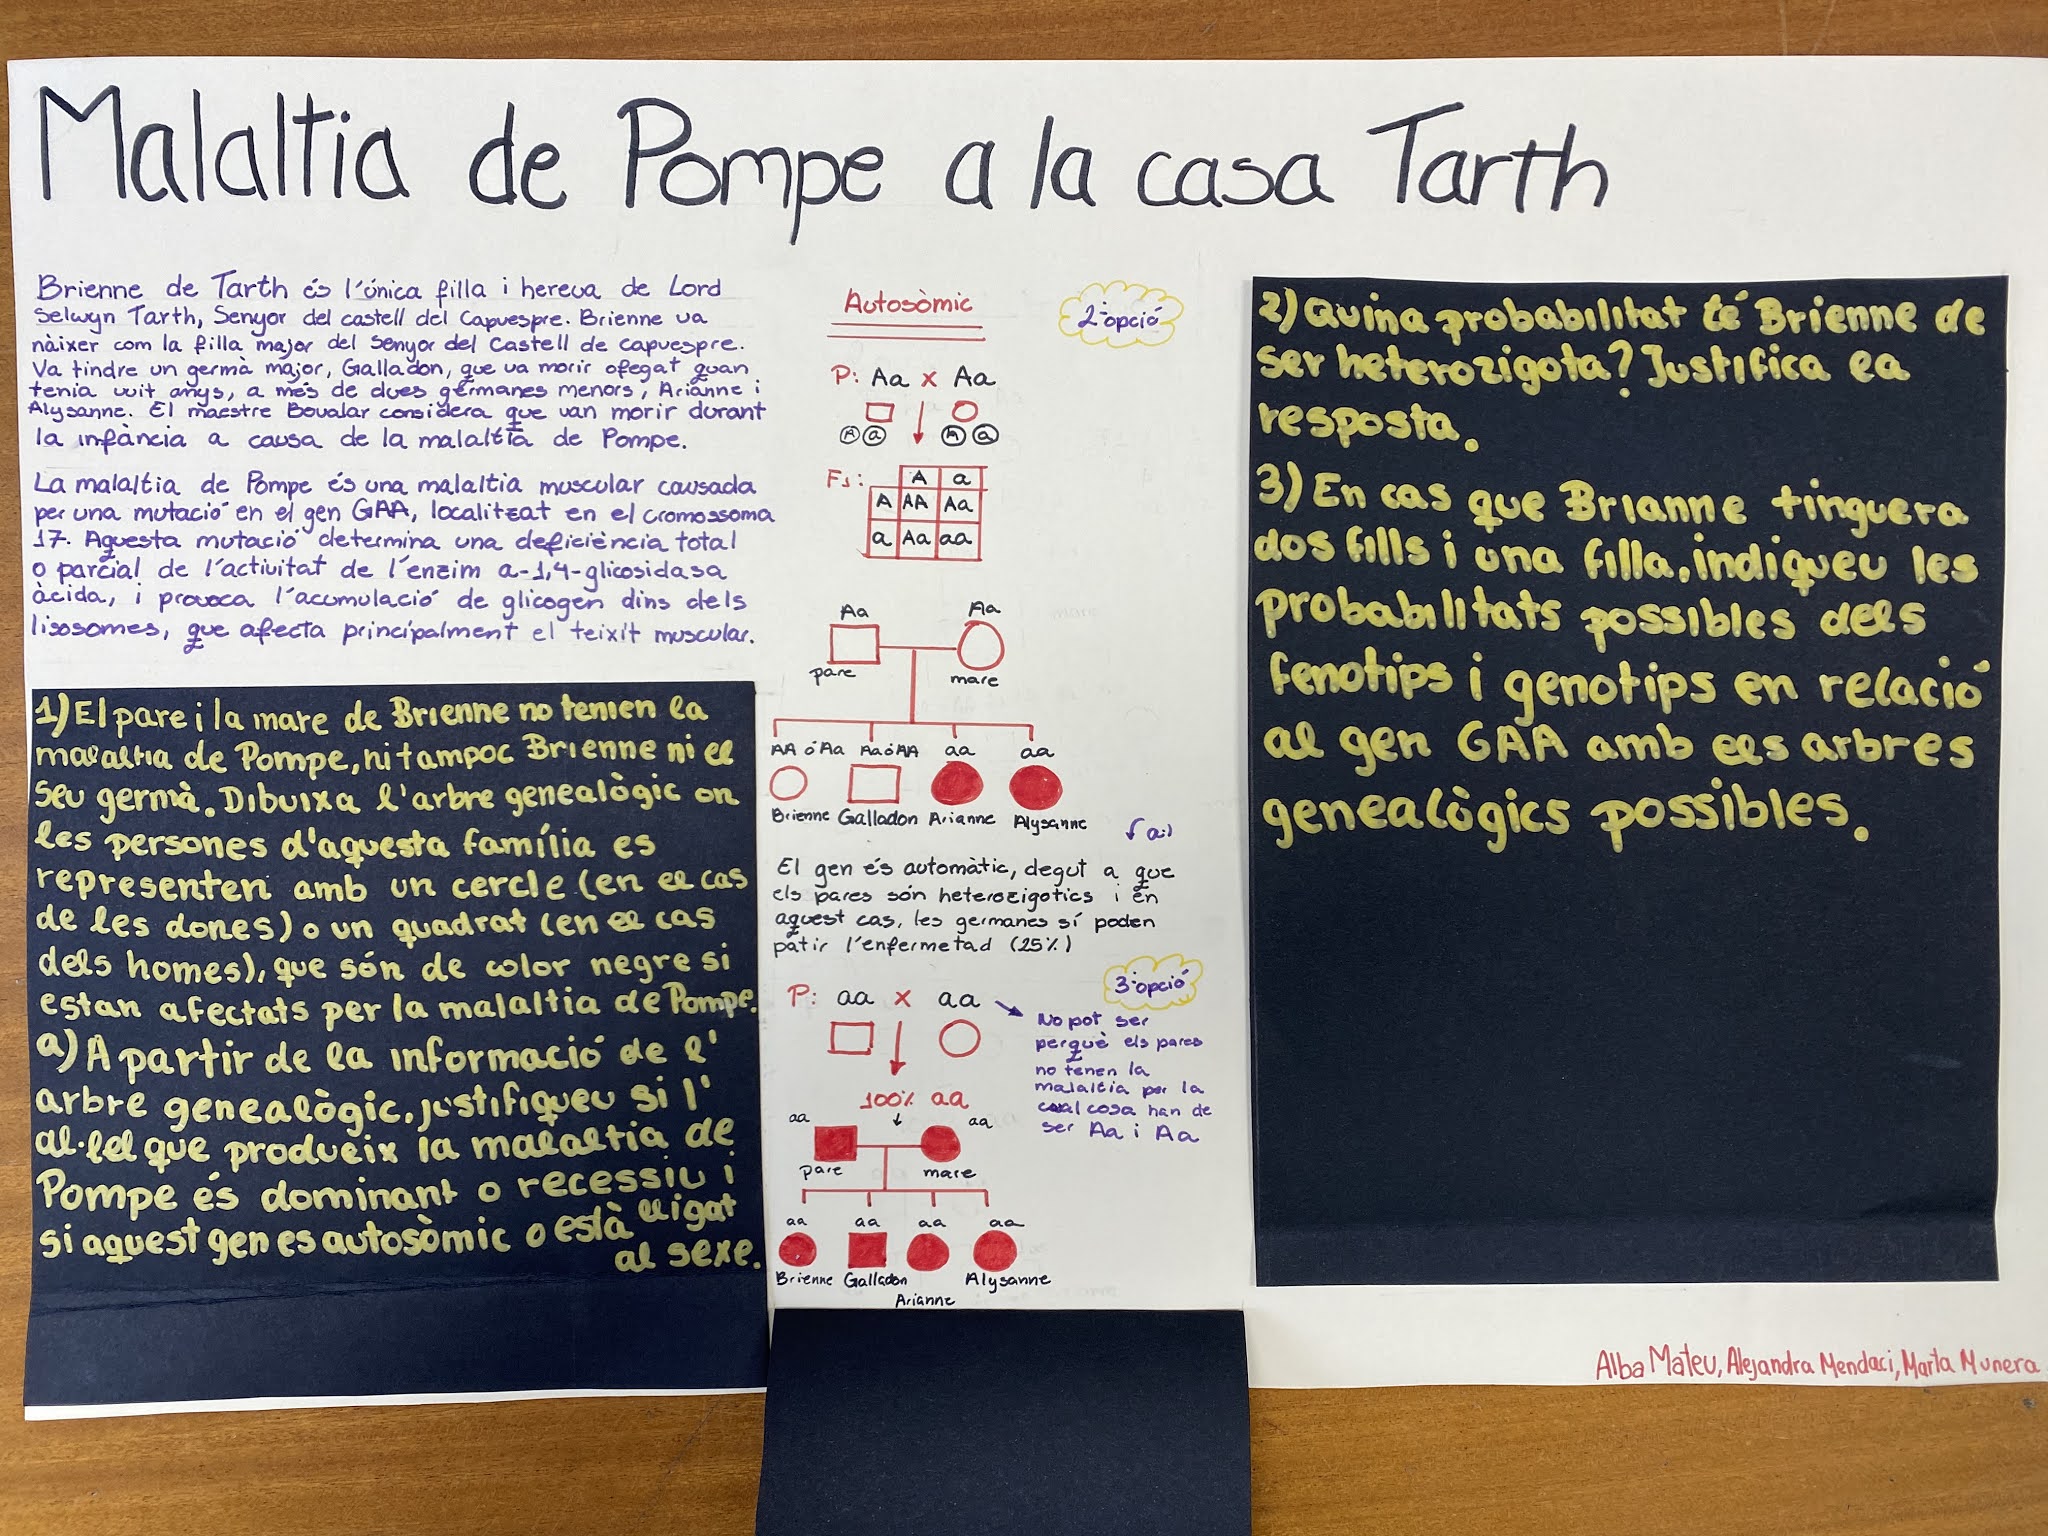 Malaltia de Pompe a la casa Tarth
Brienne de Tarth és l'única filla i hereva de Lord
Selwyn Tarth, Senyor del castell del Capvespre. Brienne va
nàixer com la filla major del Senyor del Castell de Capvespre.
Va tindre un germà major, Galladon, que va morir ofegat quan
tenia vuit anys, a més de dues germanes menors, Arianne i
Alysanne. El maestre Boualar considera que van morir durant
la infància a causa de la malaltia de Pompe.
La malaltia de Pompe és una malaltia muscular causada
per una mutació en el gen GAA, localitzat en el cromossoma
17. Aquesta mutació determina una deficiència total
o parcial de l'activitat de l'enzim a-1,4-glicosidasa
àcida, i provoca l'acumulació de glicogen dins dels
lisosomes, que afecta principalment el teixit muscular.
1) El pare i la mare de Brienne no tenien la
malaltia de Pompe, ni tampoc Brienne ni el
seu germà. Dibuixa l'arbre genealògic on
les persones d'aquesta família es
representen amb un cercle (en el cas
de les dones) o un quadrat (en el cas
dels homes), que són de color negre si
estan afectats per la malaltia de Pompe.
a) A partir de la informació de l'
arbre genealògic, justifiqueu si l'
al·lel que produeix la malaltia de
Pompe és dominant o recessiu i
si aquest gen es autosòmic o està lligat
al sexe.
Autosòmic
2ª opció
P: Aa x Aa
A a A a
F1: A a
A AA Aa
a Aa aa
Aa Aa
pare mare
AA ó Aa Aa ó AA aa aa
Brienne Galladon Arianne Alysanne
a.)
El gen és automàtic, degut a que
els pares són heterozigotics i en
aquest cas, les germanes sí poden
patir l'enfermetad (25%)
3ª opció
P: aa x aa
No pot ser
perquè els pares
no tenen la
malaltia per la
cual cosa han de
ser Aa i Aa
100% aa
aa aa
pare mare
aa aa aa aa
Brienne Galladon Alysanne
Arianne
2) Quina probabilitat té Brienne de
ser heterozigota? Justifica la
resposta.
3) En cas que Brianne tinguera
dos fills i una filla, indiqueu les
probabilitats possibles dels
fenotips i genotips en relació
al gen GAA amb els arbres
genealògics possibles.
Alba Mateu, Alejandra Mendaci, Marta Munera